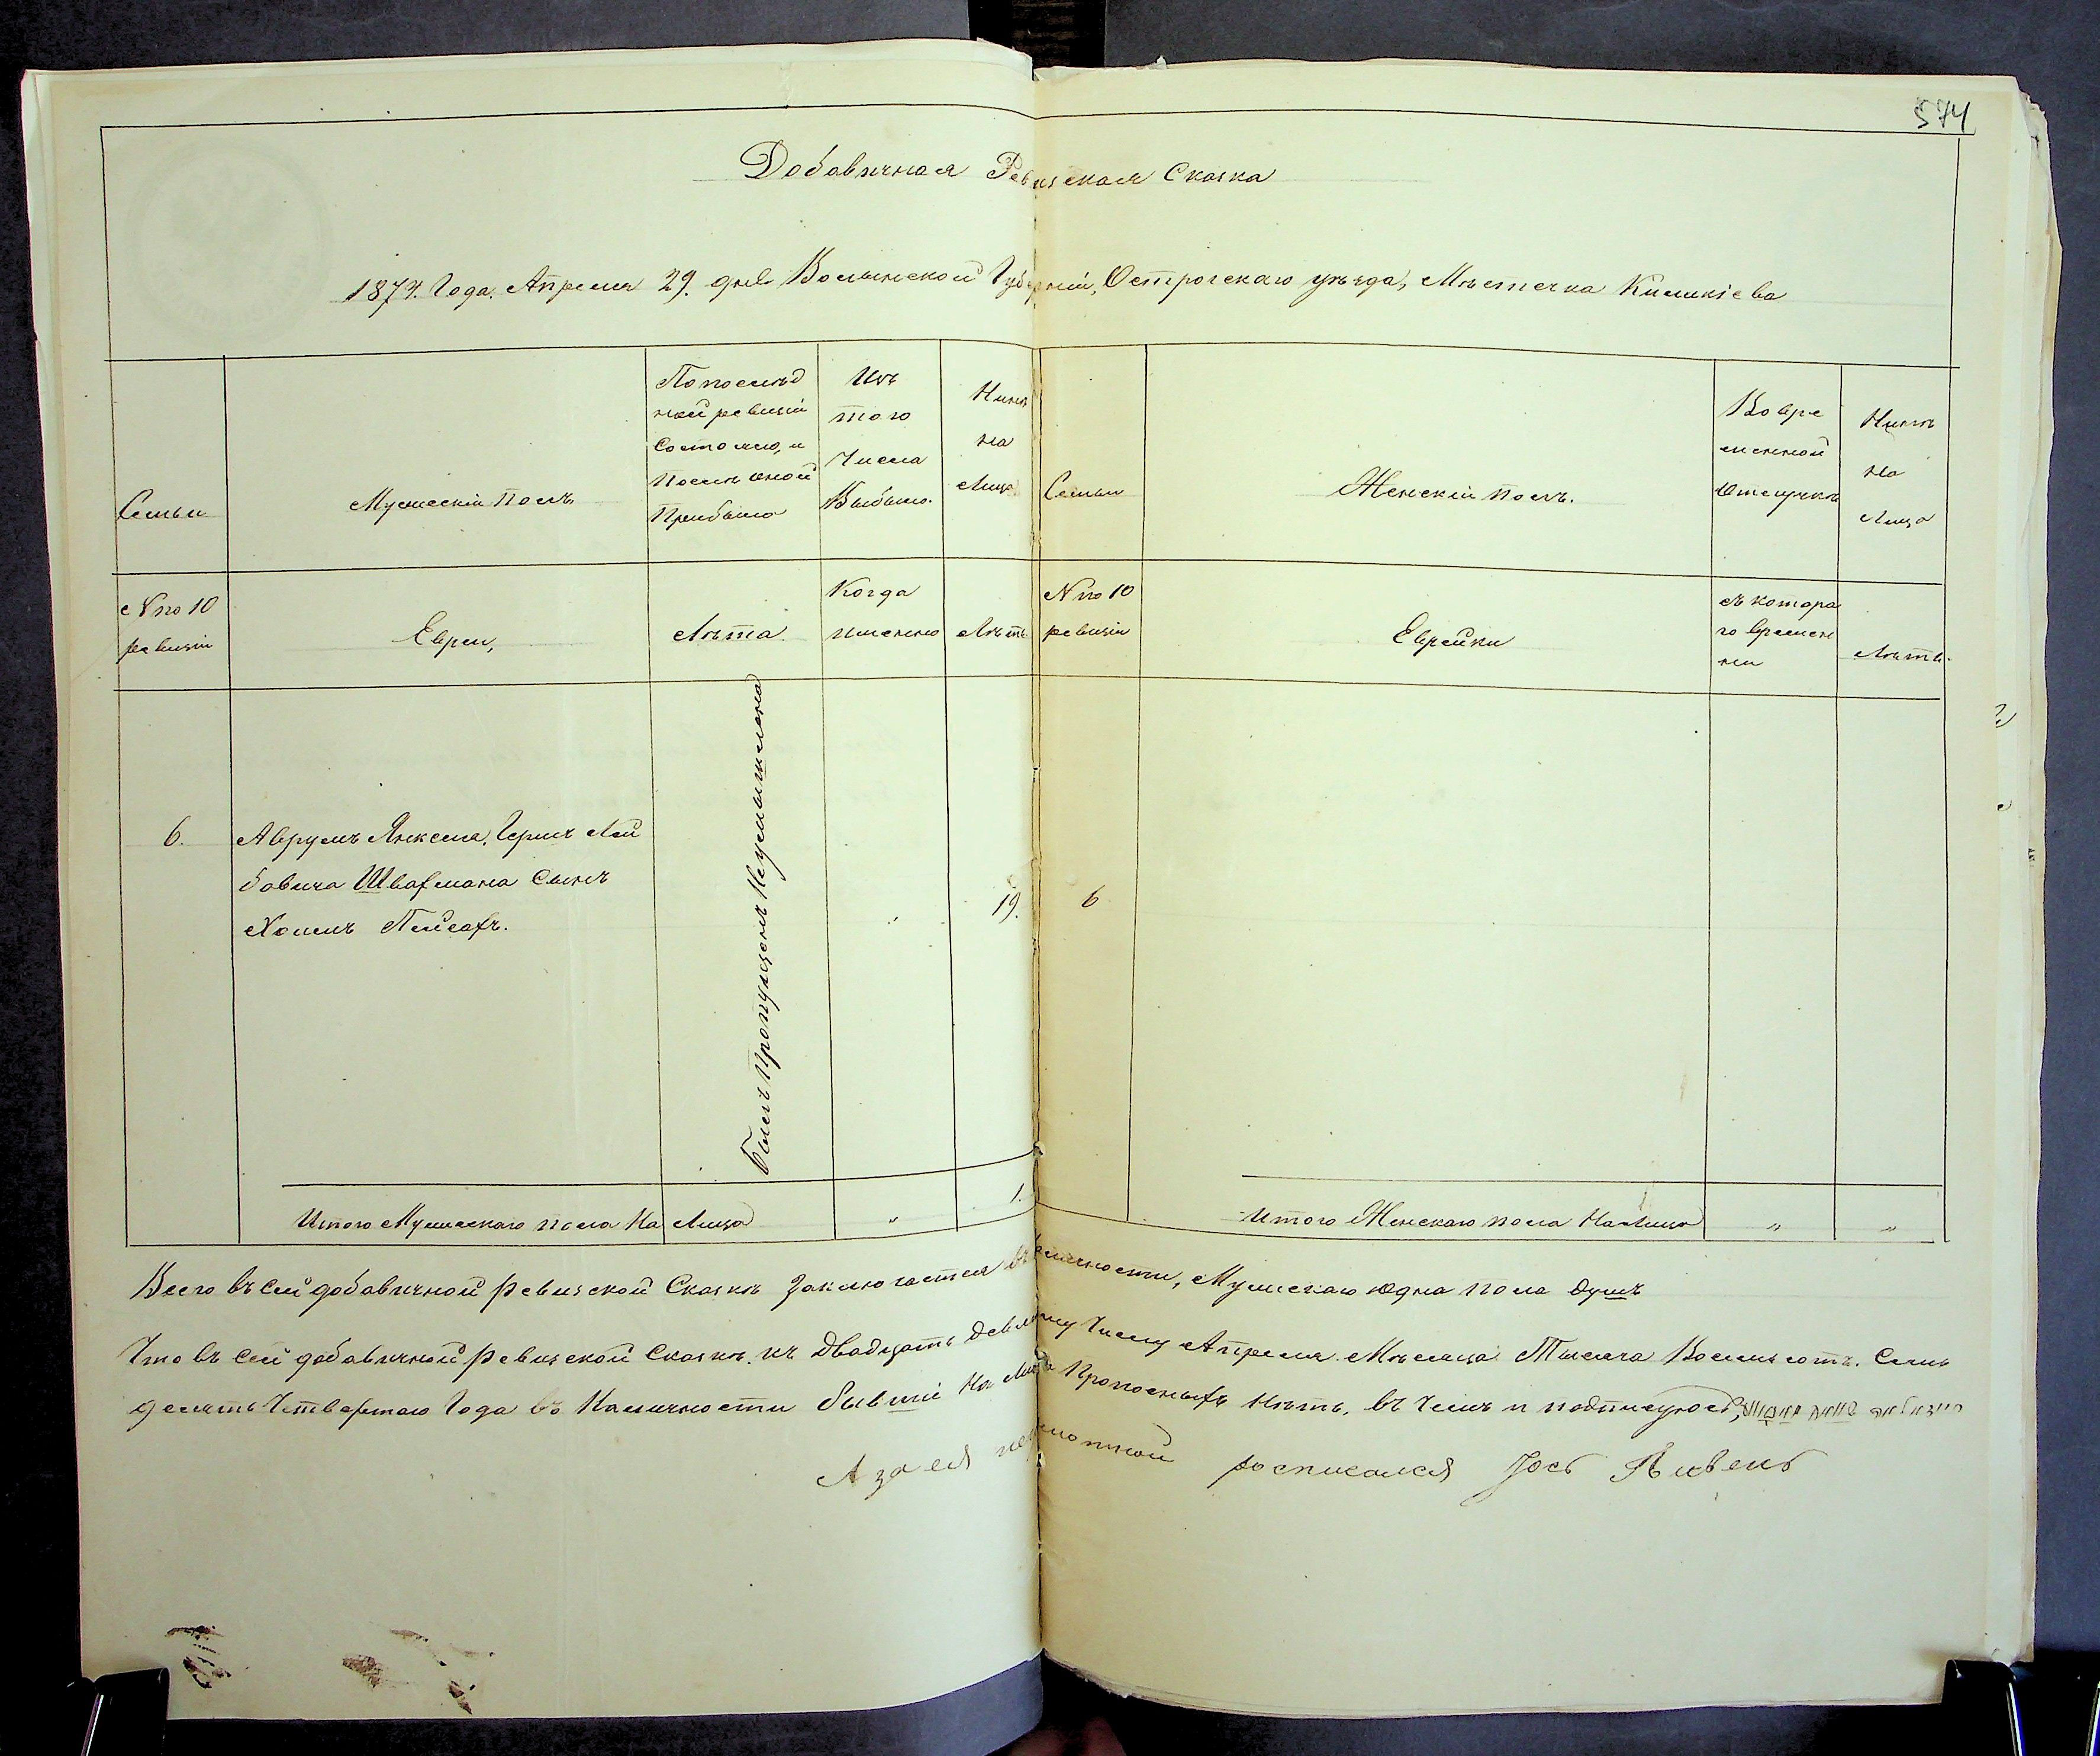 574
Добавичная Ревизская Сказка
1874. Года. Апреля 29. дня Волынской Губерніи, Острогскаго уѣзда, Мѣстечка Киликіева
Семьи
Мужескій полъ
Попослѣд
ней ревизіи
Состояло, и
послѣ оной
Прибыло
Изъ
того
Числа
Выбыло.
Нынѣ
на
Лицо
Семьи
Женскій полъ.
Вовре
менной
Отлучкѣ
Нынѣ
на
Лицо
№ по 10
ревизіи
Евреи,
Лѣта.
Когда
именно
Лѣтъ
№ по 10
ревизіи
Еврейки
съ котора
го времен
ни
Лѣтъ.
6.
Аврумъ Янкеля, Гершъ Лей
бовича Швафмана Сынъ
Хаимъ Пейсахъ.
Былъ Пропущенъ Неумышлено
"
19.
6
Итого Мужескаго пола На Лицо
"
1.
Итого Женскаго пола На Лицо
"
"
Всего въ Сей добавичной Ревизской Сказкѣ Заключается въ наличности, Мужескаго Одна пола душъ
Что въ Сей добавичной Ревизской Сказкѣ къ Двадцать Девятому Числу Апреля Мѣсяца Тысяча Восемьсотъ. Семь
десять Четвертаго Года въ Наличности бывшіе На Лицо Пропосныхъ Нѣтъ, въ Чемъ и подписуюсь,
А за ея неграмотной росписался Іось